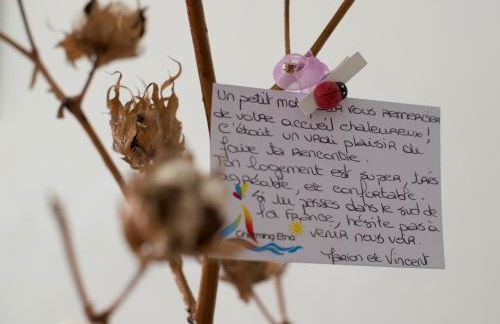 Un petit mot pour vous remercier
de votre accueil chaleureux!
C'était un vrai plaisir de
faire ta rencontre.
Ton logement est super, très
agréable, et confortable.
Si tu passes dans le sud de
la France, hésite pas à
venir nous voir.
Marion et Vincent
Charming Etna